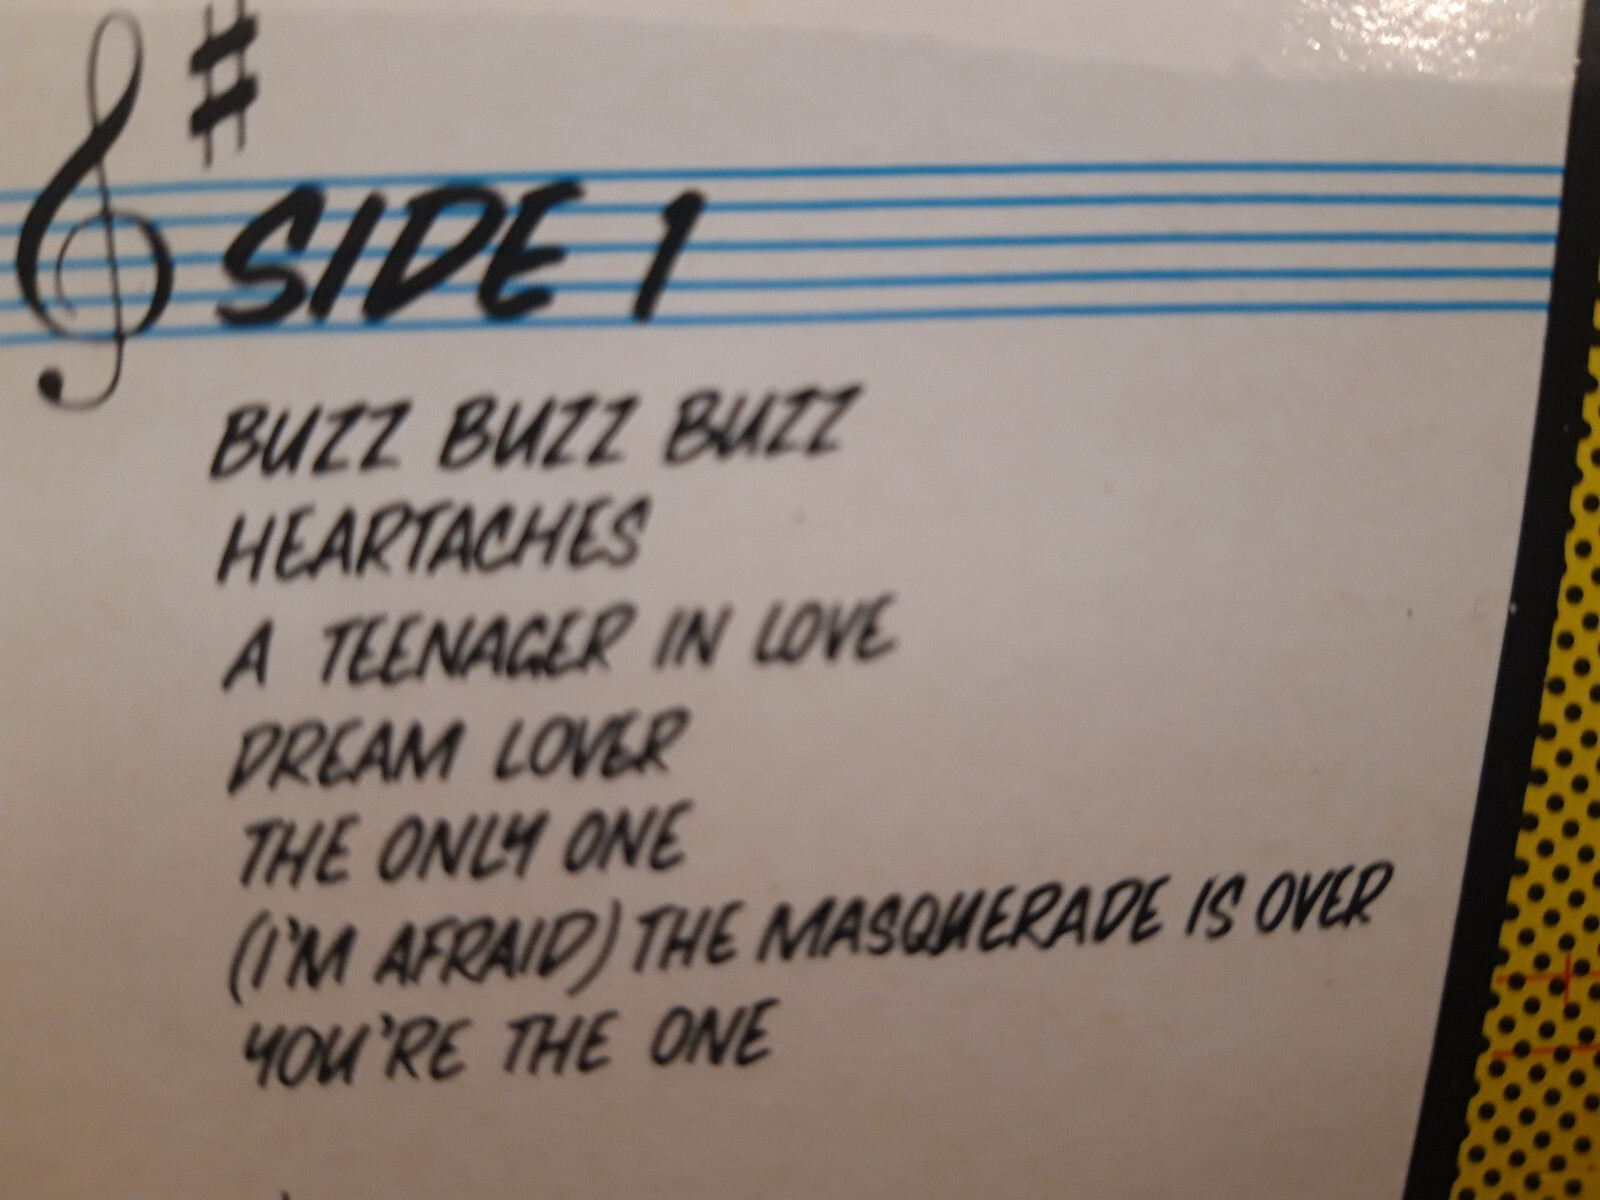 SIDE 1
BUZZ BUZZ BUZZ
HEARTACHES
A TEENAGER IN LOVE
DREAM LOVER
THE ONLY ONE
(I'M AFRAID) THE MASQUERADE IS OVER
YOU'RE THE ONE